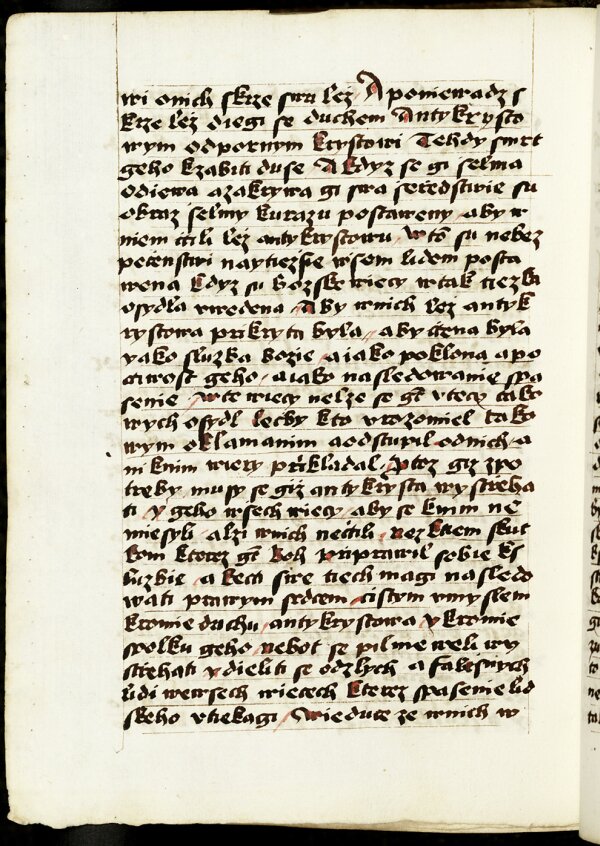 wi onich skrze swu lež A poniewadž s
krze lež diegi se duchem Antykrysto
wym odpornym krystowi Tehdy smrt
geho kzabiti duse A kdyz se gi selma
odiewa azakrywa gi swa seredstwie su
obraz selmy kurazu postaweny aby w
niem ctili lez antykrystowu w to su nebez
pecenstwi naytiezsie wsem lidem posta
wena kdyz su bozske wiecy w tak tiezka
osydla uwedena Aby wnich lez antyk
rystowa prikryta byla aby ctena byla
yako sluzba bozie aiako poklona apo
ctiwost geho aiako nasledowanie spa
senie wtee wiecy nelze se gt utecy tako
wych osydl lecby kto urozomiel tako
wym oklamanim aodstupil odnich a
niknim wiery prikladal Protoz giz zpo
treby musy se giz antykrysta wystrieha
ti y geho wsech wiecy aby se knim ne
miesyli alzi wnich nectili nez ktem skut
kom kterez gt boh pripravil sobie ks
luzbie a kech sire tiech magi nasledo
wati prawym srdcem cistym umyslem
kromie duchu antykrystowa y kromie
spolku geho nebot se pilnie weli wy
striehati y dieliti se odzlych a falesnych
lidi wewsech wiecech kterez spasenie lid
skeho utiekagi Wieduce ze wnich w